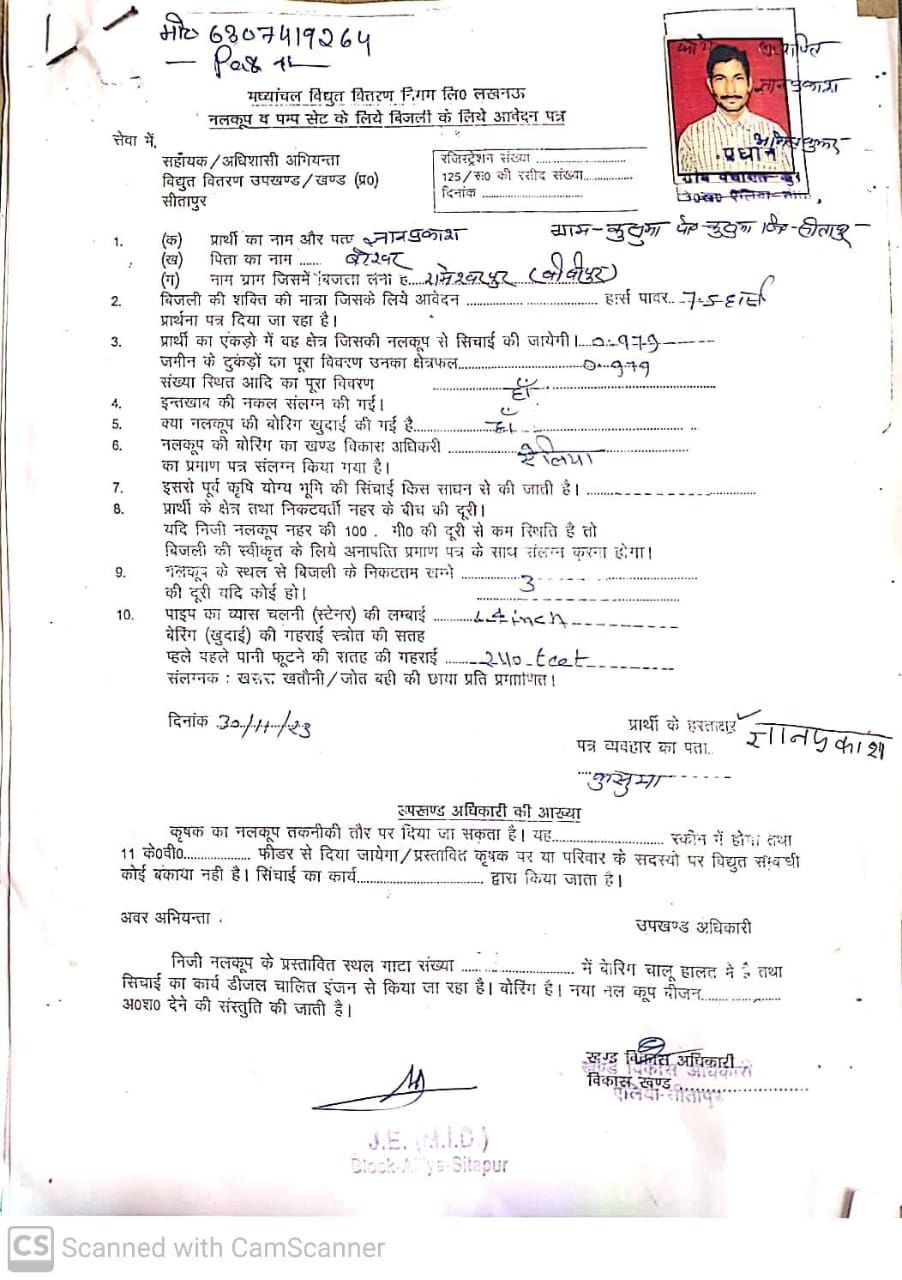 मो० 6307419264
मध्यांचल विद्युत वितरण निगम लि० लखनऊ
नलकूप व पम्प सेट के लिये बिजली के लिये आवेदन पत्र
सेवा में,
सहायक/अधिशासी अभियन्ता
विद्युत वितरण उपखण्ड/खण्ड (प्र०)
सीतापुर
रजिस्ट्रेशन संख्या ......................
125/रू0 की रसीद संख्या...............
दिनांक ..............................
ज्ञानप्रकाश
प्रधान
1. (क) प्रार्थी का नाम और पता ज्ञानप्रकाश ग्राम-कुसुमा पो०-कुसुमा जि०-सीतापुर
(ख) पिता का नाम ......
(ग) नाम ग्राम जिसमें बिजली लेनी है...रामेश्वरपुर (बीबीपुर)
2. बिजली की शक्ति की मात्रा जिसके लिये आवेदन ............................... हार्स पावर.. 7.5 हार्स
प्रार्थना पत्र दिया जा रहा है।
3. प्रार्थी का एकड़ो में वह क्षेत्र जिसकी नलकूप से सिचाई की जायेगी।..0.979
जमीन के टुकड़ों का पूरा विवरण उनका क्षेत्रफल.......................0.979
संख्या स्थित आदि का पूरा विवरण
4. इन्तखाब की नकल संलग्न की गई। हाँ
5. क्या नलकूप की बोरिंग खुदाई की गई है.............हाँ
6. नलकूप की बोरिंग का खण्ड विकास अधिकरी ............ ऐलिया
का प्रमाण पत्र संलग्न किया गया है।
7. इससे पूर्व कृषि योग्य भूमि की सिंचाई किस साधन से की जाती है। ......................
8. प्रार्थी के क्षेत्र तथा निकटवर्ती नहर के बीच की दूरी।
यदि निजी नलकूप नहर की 100 . मी० की दूरी से कम स्थिति है तो
बिजली की स्वीकृत के लिये अनापत्ति प्रमाण पत्र के साथ संलग्न करना होगा।
9. नलकूप के स्थल से बिजली के निकटतम खम्भे ............3
की दूरी यदि कोई हो।
10. पाइप का व्यास चलनी (स्टेनर) की लम्बाई ........ inch
बेरिंग (खुदाई) की गहराई स्त्रोत की सतह
प्हले पहले पानी फूटने की सतह की गहराई ....... feet
संलग्नक : खसरा खतौनी/जोत बही की छाया प्रति प्रमाणित।
दिनांक 30/11/23
प्रार्थी के हस्ताक्षर ज्ञानप्रकाश
पत्र व्यवहार का पता..
कुसुमा
उपखण्ड अधिकारी की आख्या
कृषक का नलकूप तकनीकी तौर पर दिया जा सकता है। यह..................... स्कीम में होगा तथा
11 के०वी०.............. फीडर से दिया जायेगा/प्रस्तावित कृषक पर या परिवार के सदस्यो पर विद्युत सम्बंधी
कोई बकाया नही है। सिंचाई का कार्य......................... द्वारा किया जाता है।
अवर अभियन्ता
उपखण्ड अधिकारी
निजी नलकूप के प्रस्तावित स्थल गाटा संख्या ....................... में बोरिंग चालू हालत में है तथा
सिचाई का कार्य डीजल चालित इंजन से किया जा रहा है। बोरिंग है। नया नल कूप बीजन................
अ०श० देने की संस्तुति की जाती है।
खण्ड विकास अधिकारी
खण्ड विकास अधिकारी
विकास खण्ड ..........................
ऐलिया-सीतापुर
J.E. (M.I.D.)
Block-Aliya-Sitapur
CS Scanned with CamScanner